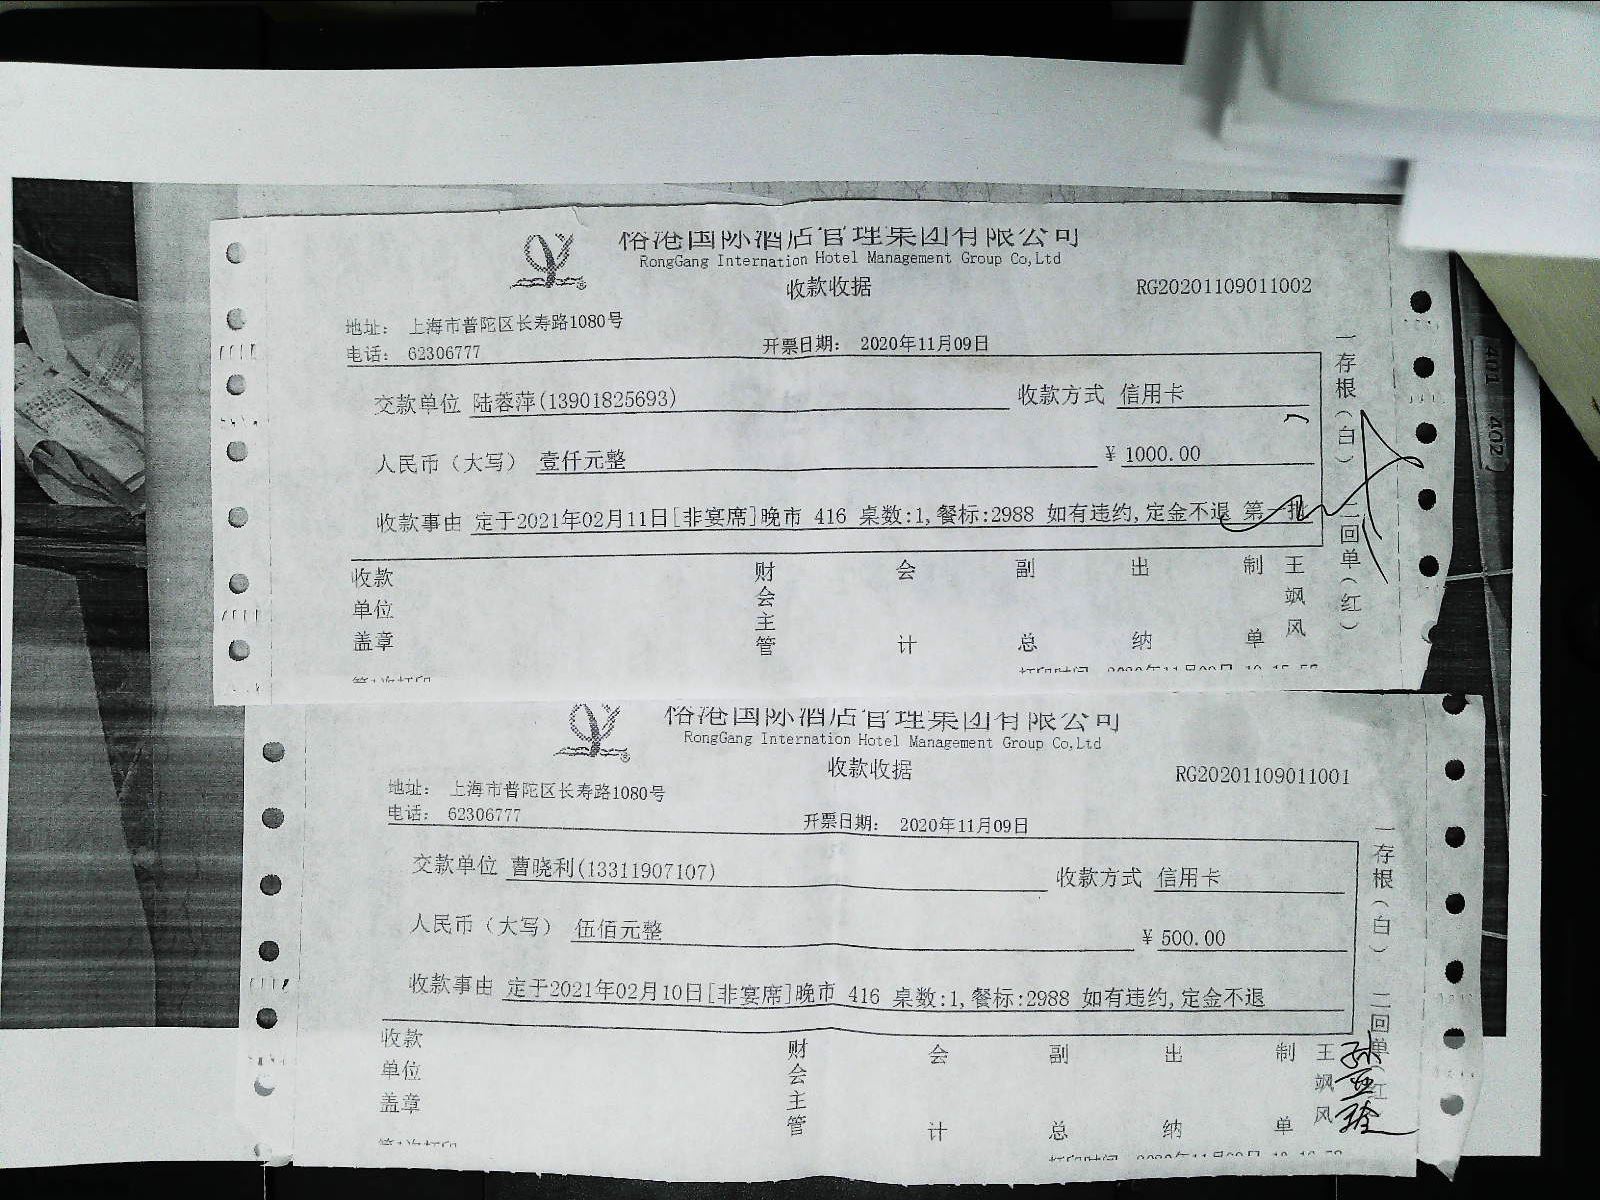 榕港国际酒店管理集团有限公司
RongGang Internation Hotel Management Group Co,Ltd
收款收据
RG20201109011002
地址： 上海市普陀区长寿路1080号
电话： 62306777
开票日期： 2020年11月09日
交款单位 陆蓉萍(13901825693) 收款方式 信用卡
人民币（大写） 壹仟元整 ¥ 1000.00
收款事由 定于2021年02月11日[非宴席]晚市 416 桌数:1,餐标:2988 如有违约,定金不退 第一批
收款单位盖章 财会主管 会计 副总 出纳 制单 王飒风
一存根（白） 二回单（红）
第1次打印
401 402
榕港国际酒店管理集团有限公司
RongGang Internation Hotel Management Group Co,Ltd
收款收据
RG20201109011001
地址： 上海市普陀区长寿路1080号
电话： 62306777
开票日期： 2020年11月09日
交款单位 曹晓利(13311907107) 收款方式 信用卡
人民币（大写） 伍佰元整 ¥ 500.00
收款事由 定于2021年02月10日[非宴席]晚市 416 桌数:1,餐标:2988 如有违约,定金不退
收款单位盖章 财会主管 会计 副总 出纳 制单 王飒风
一存根（白） 二回单（红）
第1次打印